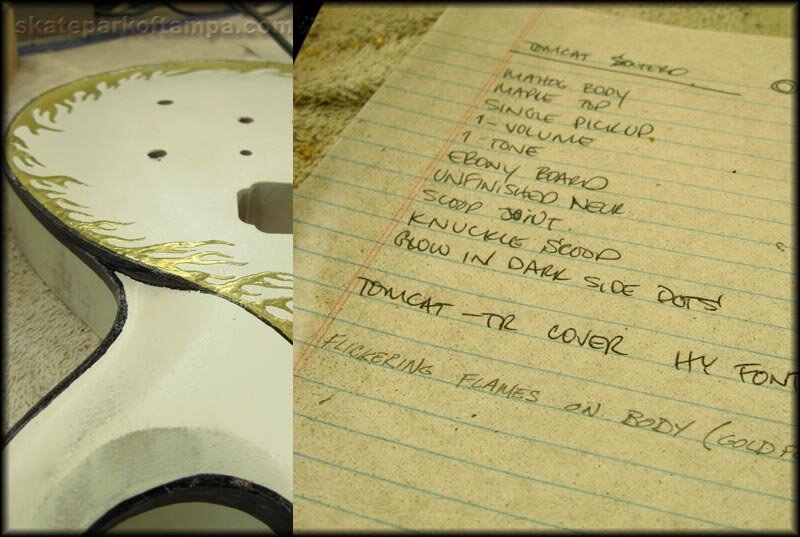 skateparkoftampa.com
TOMCAT
MAHOG BODY
MAPLE TOP
SINGLE PICKUP
1-VOLUME
1-TONE
EBONY BOARD
UNFINISHED NECK
SCOOP JOINT.
KNUCKLE SCOOP
GLOW IN DARK SIDE DOTS
TOMCAT -TR COVER HY FONT
FLICKERING FLAMES ON BODY (GOLD F